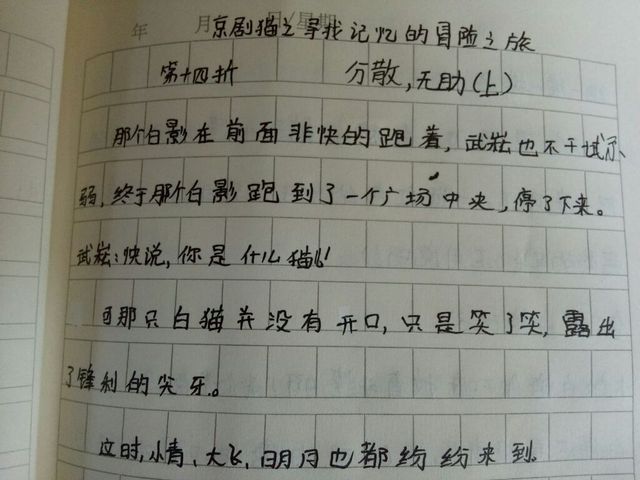 年 月 日/星期
京剧猫之寻找记忆的冒险之旅
第十四折 分散,无助(上)
那个白影在前面非快的跑着,武崧也不干试示
弱,终于那个白影跑到了一个广场中央,停了下来。
武崧:快说,你是什么猫!
可那只白猫并没有开口,只是笑了笑,露出
了锋利的尖牙。
这时,小青、大飞、明月也都纷纷来到。